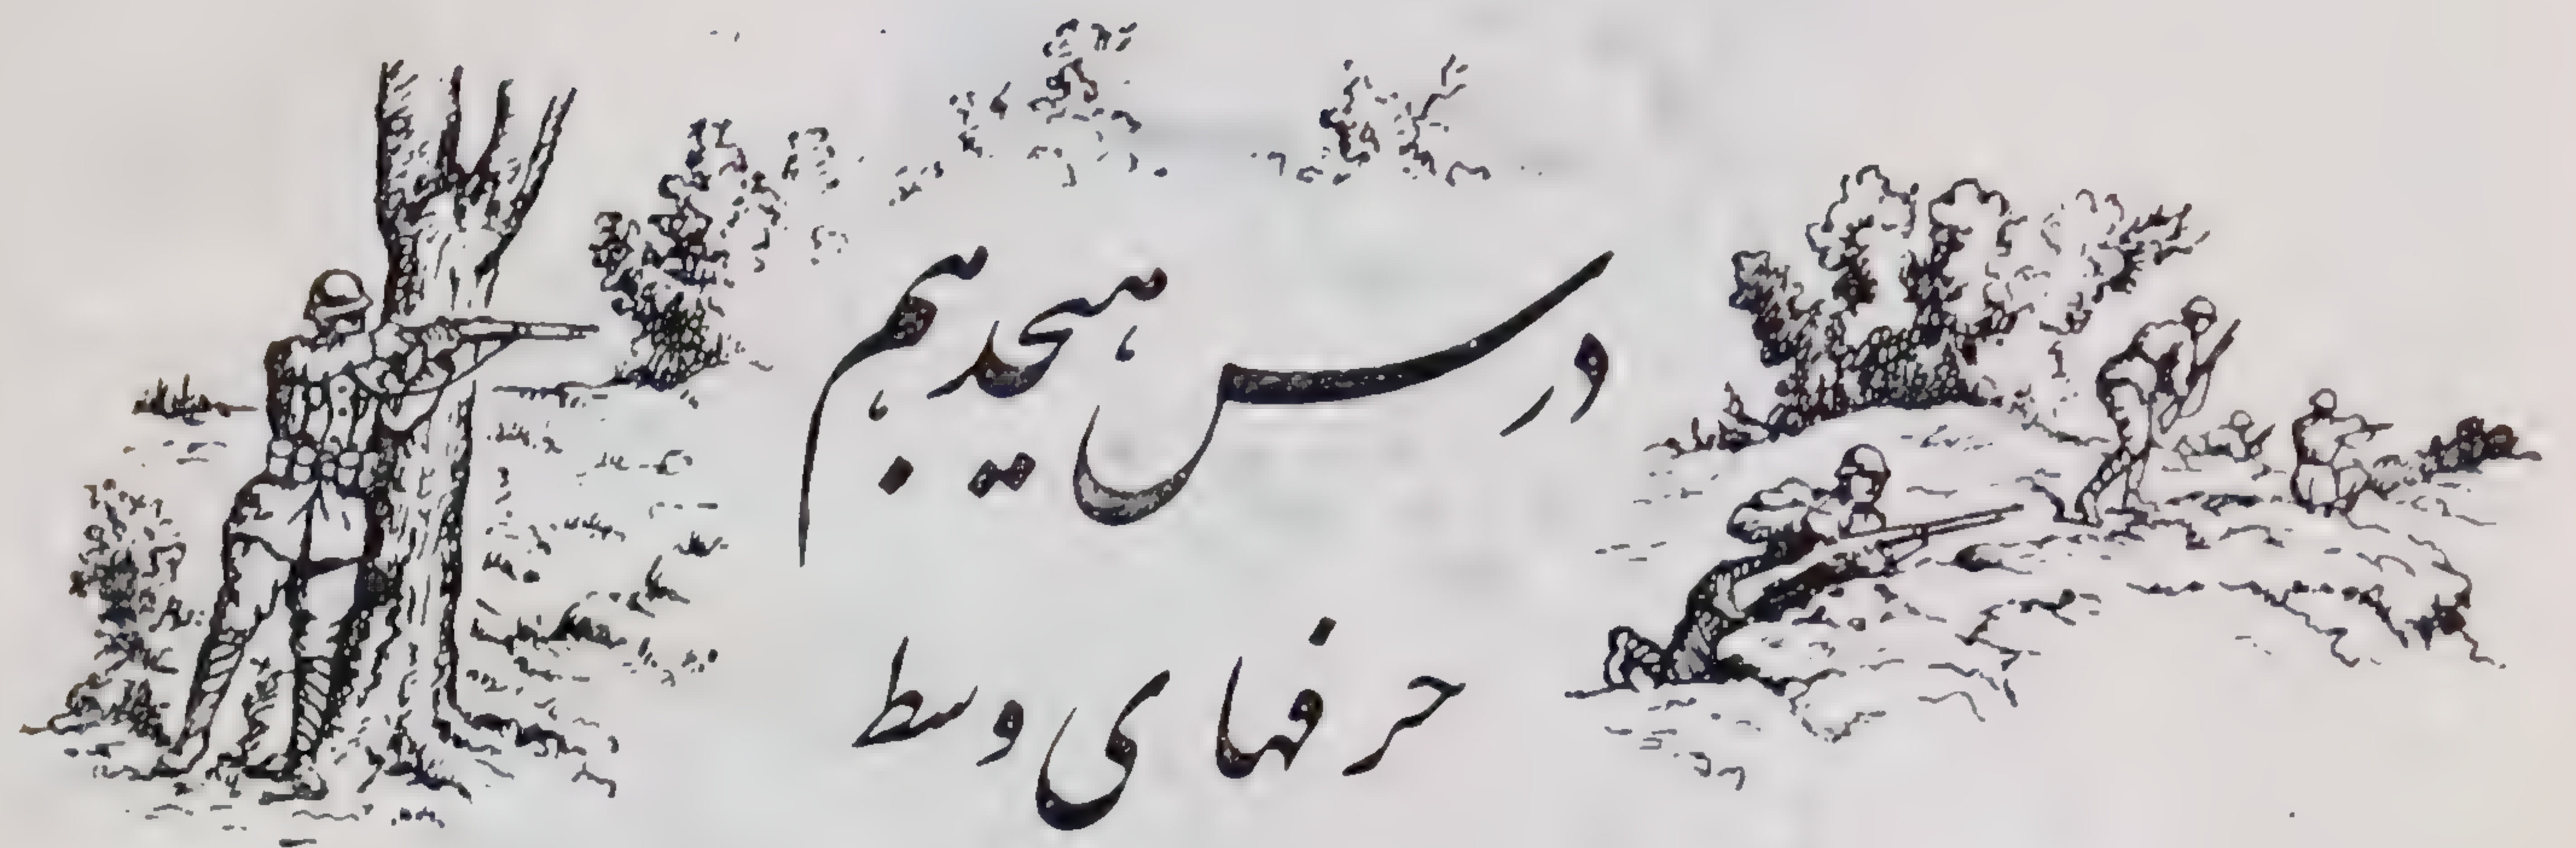 درس هیجدهم
حرفهای وسط